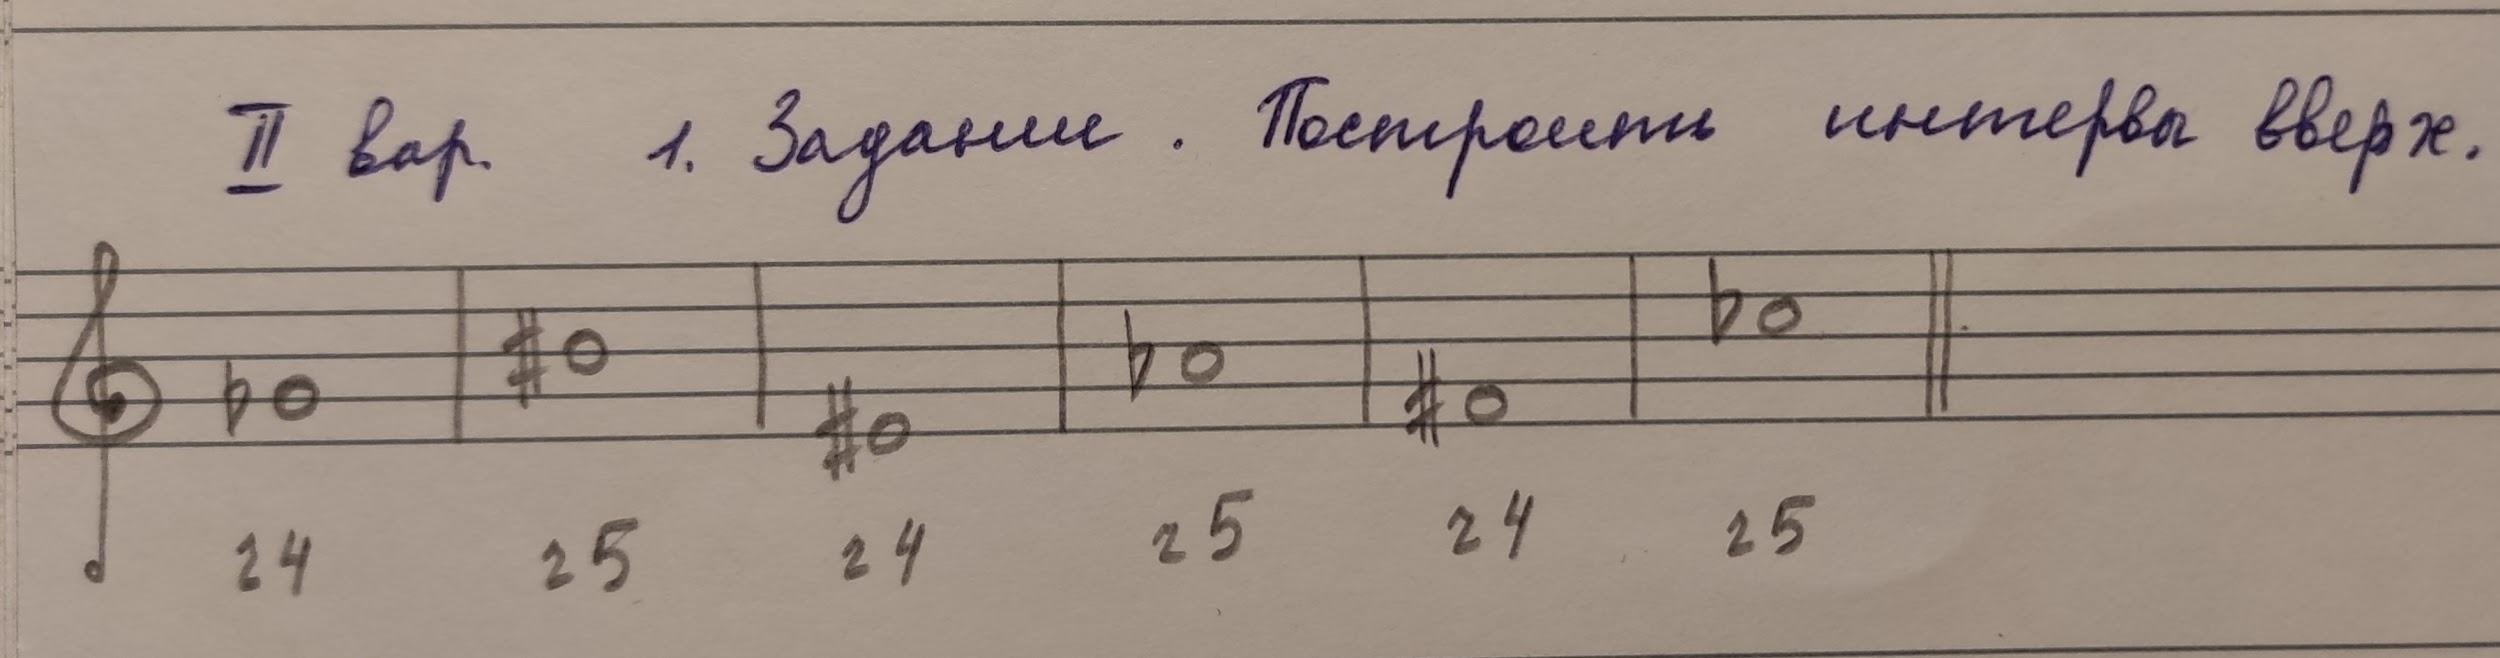 II вар. 1. Задание. Построить интервы вверх.
ч4 ч5 ч4 ч5 ч4 ч5